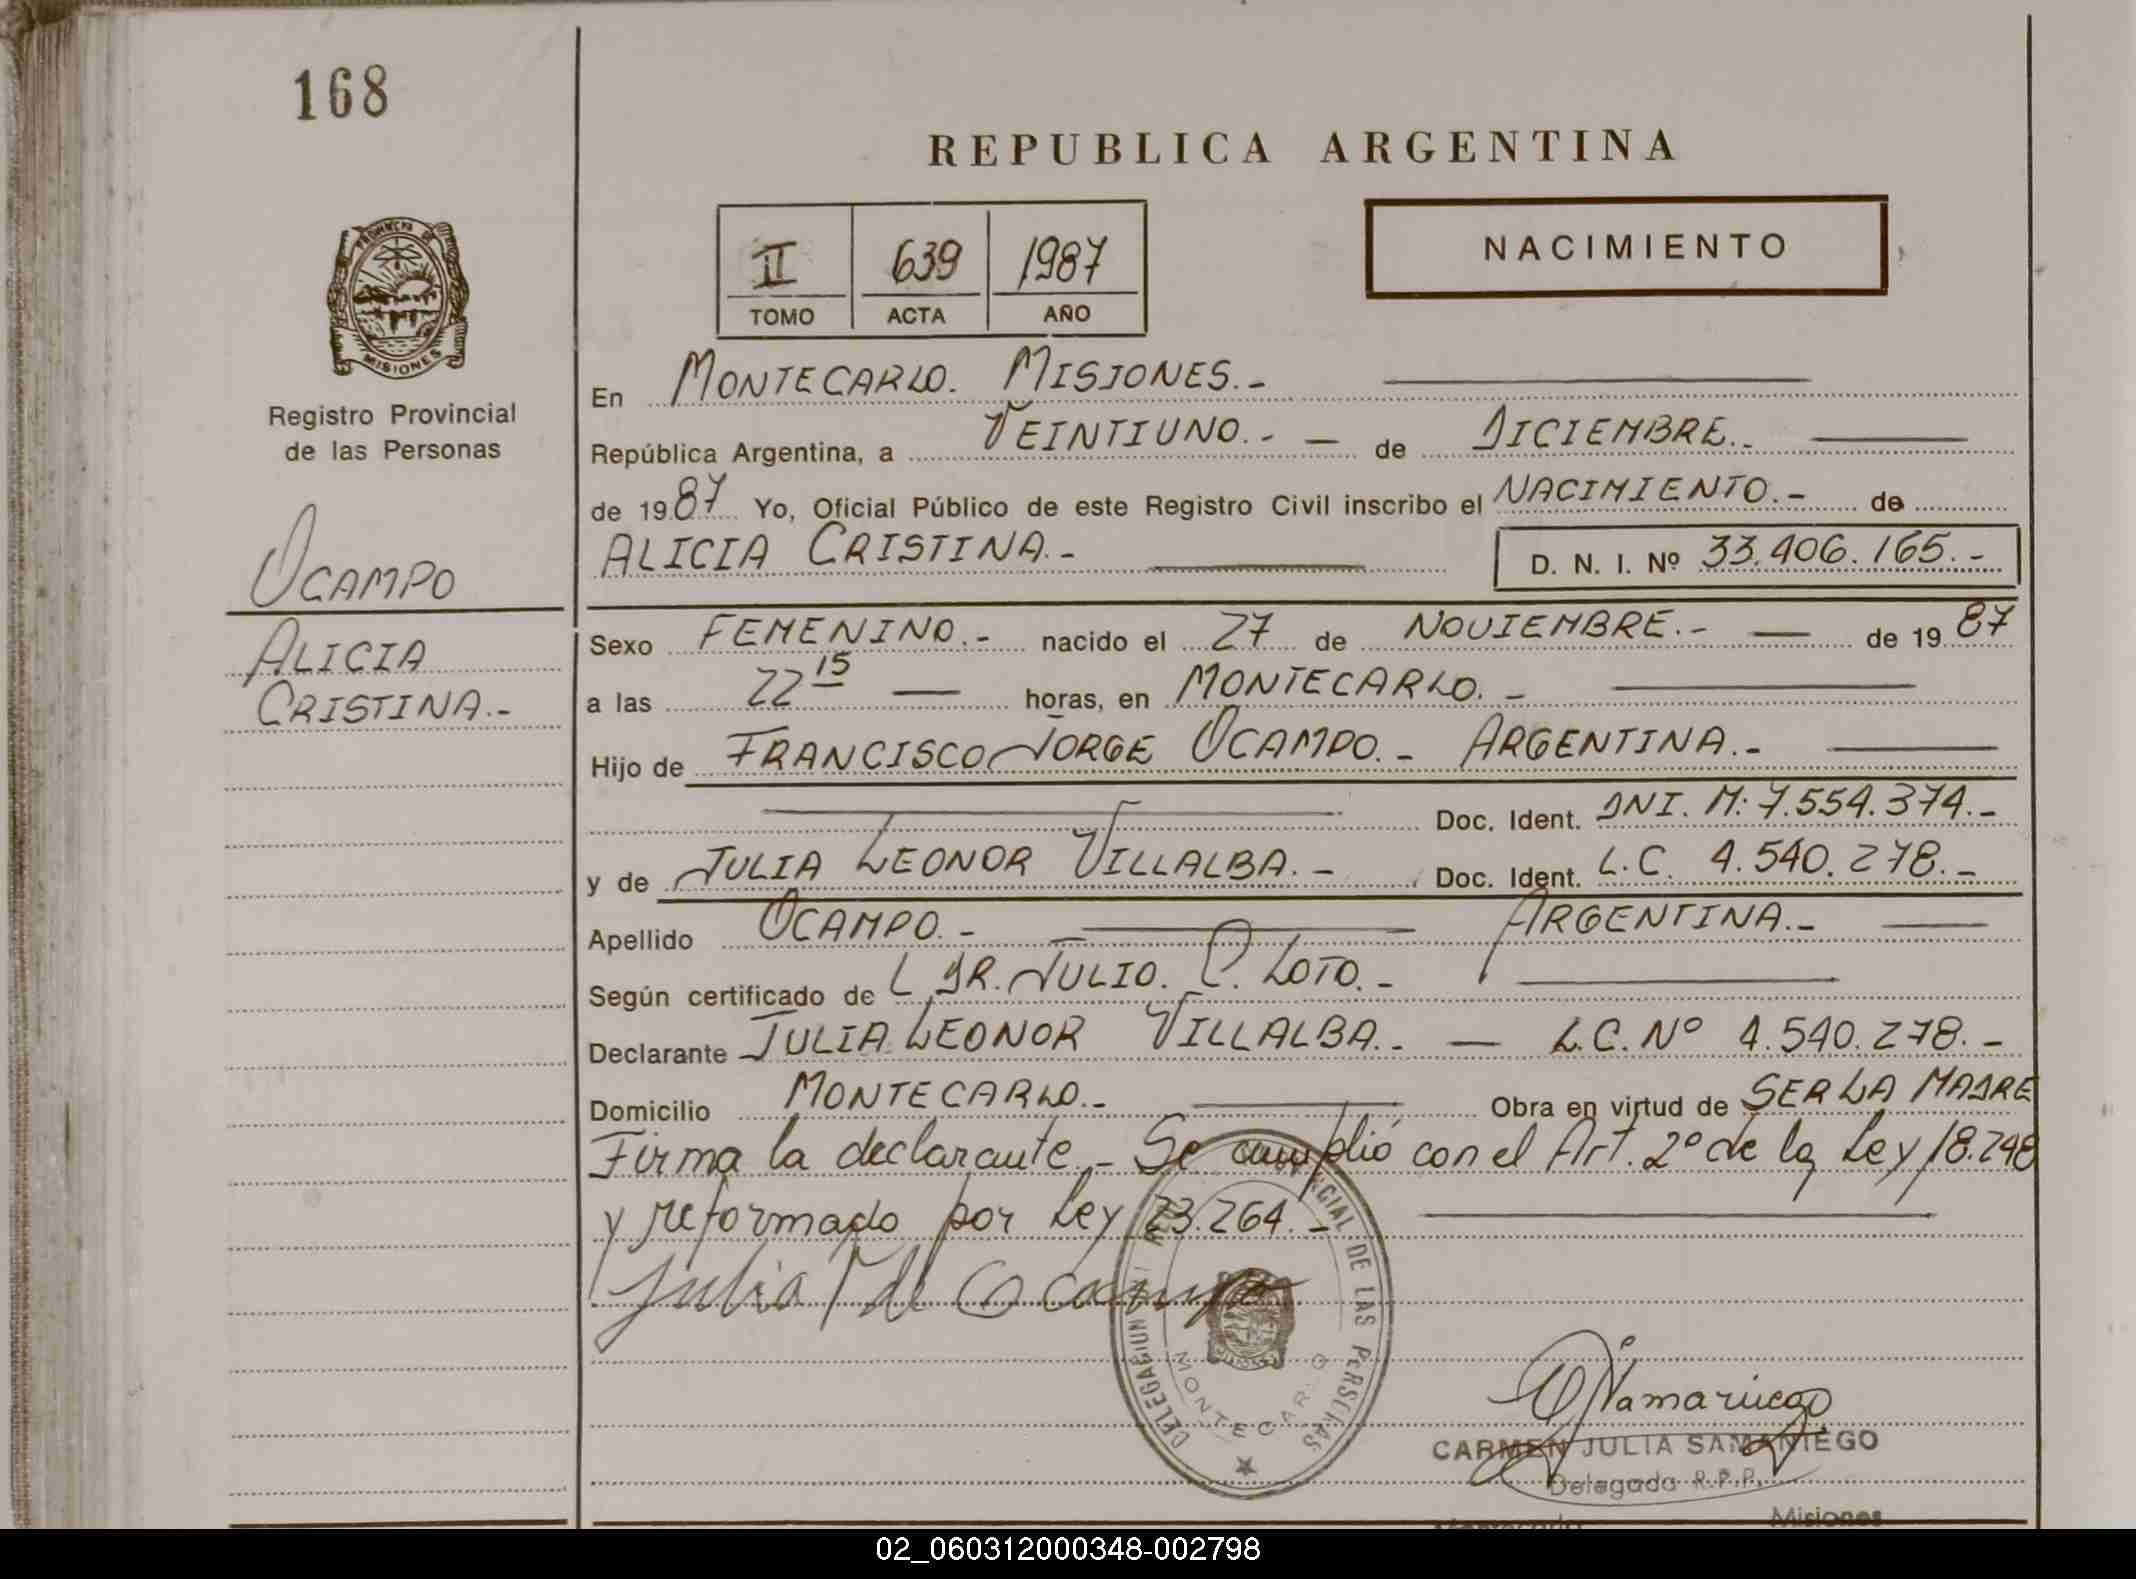 168
REPUBLICA ARGENTINA
PROVINCIA DE
MISIONES
Registro Provincial
de las Personas
OCAMPO
ALICIA
CRISTINA.-
II 639 1987
TOMO ACTA AÑO
NACIMIENTO
En MONTECARLO. MISIONES.-
República Argentina, a VEINTIUNO.- — de DICIEMBRE.-
de 1987 Yo, Oficial Público de este Registro Civil inscribo el NACIMIENTO.- de
ALICIA CRISTINA.- D. N. I. Nº 33.406.165.-
Sexo FEMENINO.- nacido el 27 de NOVIEMBRE.- — de 1987
a las 22 15 — horas, en MONTECARLO.-
Hijo de FRANCISCO JORGE OCAMPO.- ARGENTINA.-
Doc. Ident. DNI. M: 7.554.374.-
y de JULIA LEONOR VILLALBA.- Doc. Ident. L.C. 4.540.278.-
Apellido OCAMPO.- ARGENTINA.-
Según certificado de L DR. JULIO. C. LOTO.-
Declarante JULIA LEONOR VILLALBA.- — L.C. Nº 4.540.278.-
Domicilio MONTECARLO.- Obra en virtud de SER LA MADRE
Firma la declarante.- Se cumplió con el Art. 2º de la Ley 18.248
y reformado por Ley 23.264.-
Julia V de Ocampo
DELEGACION PROVINCIAL DE LAS PERSONAS
MONTECARLO
CARMEN JULIA SAMANIEGO
Delegada R.P.P.
Montecarlo Misiones
02_060312000348-002798